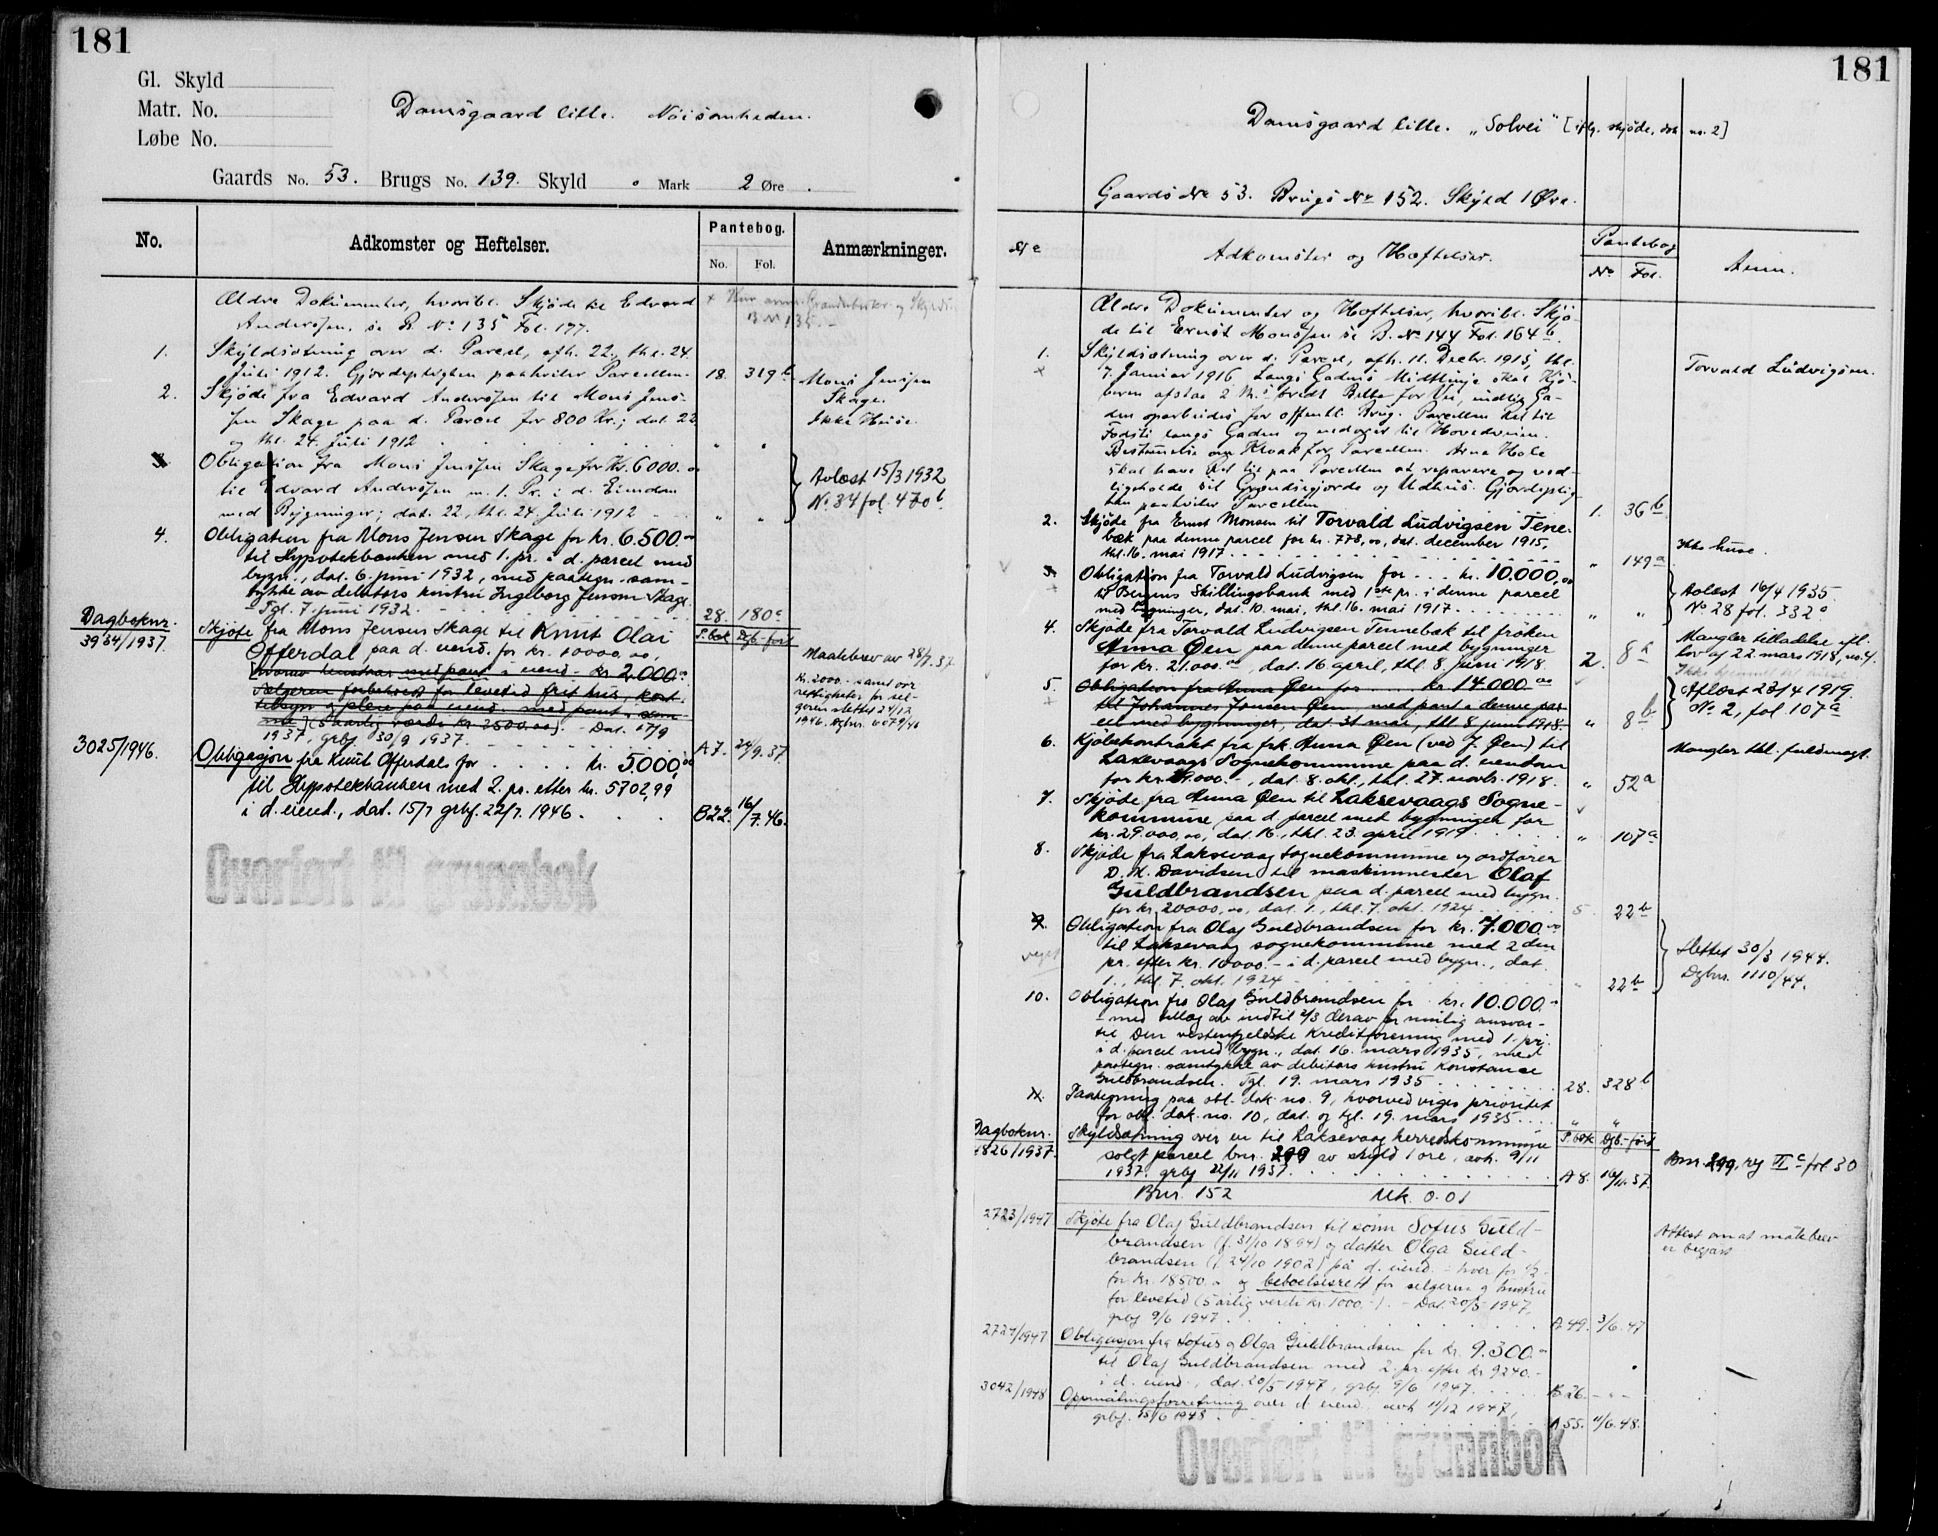 181
Gl. Skyld
Matr. No.
Løbe No.
Damsgaard lille. Nöisomheden.
Gaards No. 53. Brugs No. 139. Skyld 0 Mark 2 Øre.
No.
Adkomster og Heftelser.
Pantebog.
No. Fol.
Anmærkninger.
Ældre Dokumenter, hvoribl. Skjøde til Edvard
Anderssen, se B. No 135 Fol. 177.
1. Skyldsætning over d. Parcel, afh. 22., thl. 24.
Juli 1912. Gjerdepligten paahviler Parcellen. 18. 319 b
2. Skjøde fra Edvard Anderssen til Mons Jens-
sen Skage paa d. Parcel for 800 Kr.; dat. 22
og thl. 24. Juli 1912 " "
Mons Jensen
Skage.
Ikke Huse.
3. Obligation fra Mons Jenssen Skage for Kr. 6000.00
til Edvard Anderssen m. 1. Pr. i d. Eiendom
med Bygninger; dat. 22, thl. 24. Juli 1912 " "
Avlæst 15/3 1932
No. 34 fol. 470 b.
4. Obligation fra Mons Jensen Skage for kr. 6.500.00
til Hypotekbanken med 1. pr. i d. parcel med
bygn., dat. 6. juni 1932, med paategn. sam-
tykke av debitors hustru Ingeborg Jensen Skage.
Tgl. 7. juni 1932. 28. 180 a
Dagboknr.
3934/1937.
P.bok Dgb.-ført
Skjøte fra Mons Jensen Skage til Knut Olai
Offerdal paa d. eiend. for kr. 10000.00,
hvorav henstaar med pant i eiend. kr 2.000.00
Sælgeren forbeholdt for levetid frit hus, kost
tilsyn og pleie paa eiend. med pant i sam-
me] (5 aarlig værdi kr. 2500.00). - Dat. 17/9
1937, grbf. 30/9 1937. A7. 24/9.37
Maalebrev av 28/7.37
Kr. 2000.- samt
rettigheter for sel-
geren slettet 24/12
1946. Dgbnr.
3025/1946.
Obligasjon fra Knut Offerdal for kr. 5.000,00
til Hypotekbanken med 2. pr. efter kr. 5702,99
i d. eiend., dat. 15/7 grbf. 22/7. 1946. B22. 16/7.46.
Overført til grunnbok
181
Damsgaard lille. "Solvei" [iflg. skjøde, dok no. 2]
Gaards No 53. Brugs No 152. Skyld 1 Øre.
No
Adkomster og Hæftelser.
Pantebog
No Fol.
Anm.
Ældre Dokumenter og Hæftelser, hvoribl. Skjø-
de til Ernst Monssen se B. No 144 Fol. 164 b.
1. Skyldsætning over d. Parcel, afh. 11. Decbr. 1915, thl.
7. Januar 1916. Langs Gadens Midtlinje skal Kjø-
beren afstaa 2 M. bredt Belte for Vei, indtil Ga-
den oparbeides for offentl. Brug. Parcellen Ret til
Fodsti langs Gaden og nedover til Hovedveien.
Bestemmelse om Kloak for Parcellen. Arne Hole
skal have Ret til paa Parcellen at reparere og ved-
ligeholde sit Grændsegjerde og Udhus. Gjerdeplig-
ten paahviler Parcellen 1. 36 b
Torvald Ludvigsen.
2. Skjøde fra Ernst Monsen til Torvald Ludvigsen Tene-
bæk paa denne parcel for kr. 778,00, dat. december 1915,
thl. 16. mai 1917. " 149 a
Ikke huse.
3. Obligation fra Torvald Ludvigsen for kr. 10.000,00
til Bergens Skillingsbank med 1ste pr. i denne parcel
med bygninger, dat. 10. mai, thl. 16. mai 1917. " "
Avlæst 16/4 1935
No 28 fol. 332 a
4. Skjøde fra Torvald Ludvigsen Tennebæk til frøken
Anna Øen paa denne parcel med bygninger
for kr. 21.000.00, dat. 16 april, thl. 8. juni 1918. 2. 8 a
Mangler tilladelse efl.
lov af 22. mars 1918, no. 4.
5. Obligation fra Anna Øen for kr. 14.000.00
til Johannes Jensen Øen med pant i denne par-
cel med bygninger, dat. 31 mai, thl. 8 juni 1918. " 8 b
Aflæst 23/4 1919.
No. 2, fol 107 a
6. Kjøbekontrakt fra frk. Anna Øen (ved J. Øen) til
Laxevaags Sognekommune paa d. eiendom
for kr. 29.000.-, dat. 8. okt., thl. 27. novbr. 1918. " 52 a
Mangler thl. fuldmagt.
7. Skjøde fra Anna Øen til Laksevaags Sogne-
kommune paa d. parcel med bygninger for
kr. 29.000,00, dat. 16., thl. 23. april 1919. " 107 a
8. Skjøde fra Laksevaag sognekommune v. ordfører
D. M. Davidsen til maskinmester Olaf
Guldbrandsen paa d. parcel med bygn.
for kr. 20000,00, dat. 1., thl. 7. okt. 1924. 5 22 b
9. Obligation fra Olaf Guldbrandsen for kr. 7.000.00
til Laksevaag sognekommune med 2den
pr. efter kr. 10000.- i d. parcel med bygn., dat.
1., thl. 7. okt. 1924 " 22 b
Slettet 30/3 1944.
Dgbnr. 1110/44.
10. Obligation fra Olaf Guldbrandsen for kr. 10.000.-
- med tillæg av indtil 2/3 derav for mulig ansvar -
til Den vestenfjeldske Kreditforening med 1. pr.
i d. parcel med bygn., dat. 16. mars 1935, med
paategn. samtykke av debitors hustru Konstance
Guldbrandsen. Tgl. 19. mars 1935 28. 328 b
11. Paategning paa obl. dok. no. 9, hvorved viges prioritet
for obl. dok. no. 10, dat. og tgl. 19. mars 1935 " "
Dagboknr.
4826/1937.
P.bok Dgb.-ført
Skyldsætning over en til Laksevaag herredskommune
solgt parcel bnr. 299 av skyld 1 øre, avh. 9/11
1937, grbf 22/11 1937. A8. 16/11.37.
Bnr. 299, reg II c fol 30
Bnr. 152 Mk. 0.01
2723/1947
Skjøte fra Olaf Guldbrandsen til sønn Sofus Guld-
brandsen (f. 31/10 1894) og datter Olga Guld-
brandsen (f. 24/10 1902) på d. eiend. - hver for 1/2 -
for kr. 18500.- og beboelsesrett for selgeren og hustru
for levetid (5 årlig verdi kr. 1000.-). - Dat. 20/5 1947,
grbf 9/6 1947. A49. 3/6.47
Attest om at målebrev
er begjært
2724/1947
Obligasjon fra Sofus og Olga Guldbrandsen for kr. 9.300.-
til Olaf Guldbrandsen med 2. pr. efter kr 9240.-
i d. eiend., dat. 20/5 1947, grbf. 9/6 1947. B26. - " -
3042/1948
Oppmålingsforretning over d. eiend. avh. 11/12 1947,
grbf. 15/6 1948. A55. 11/6.48.
Overført til grunnbok